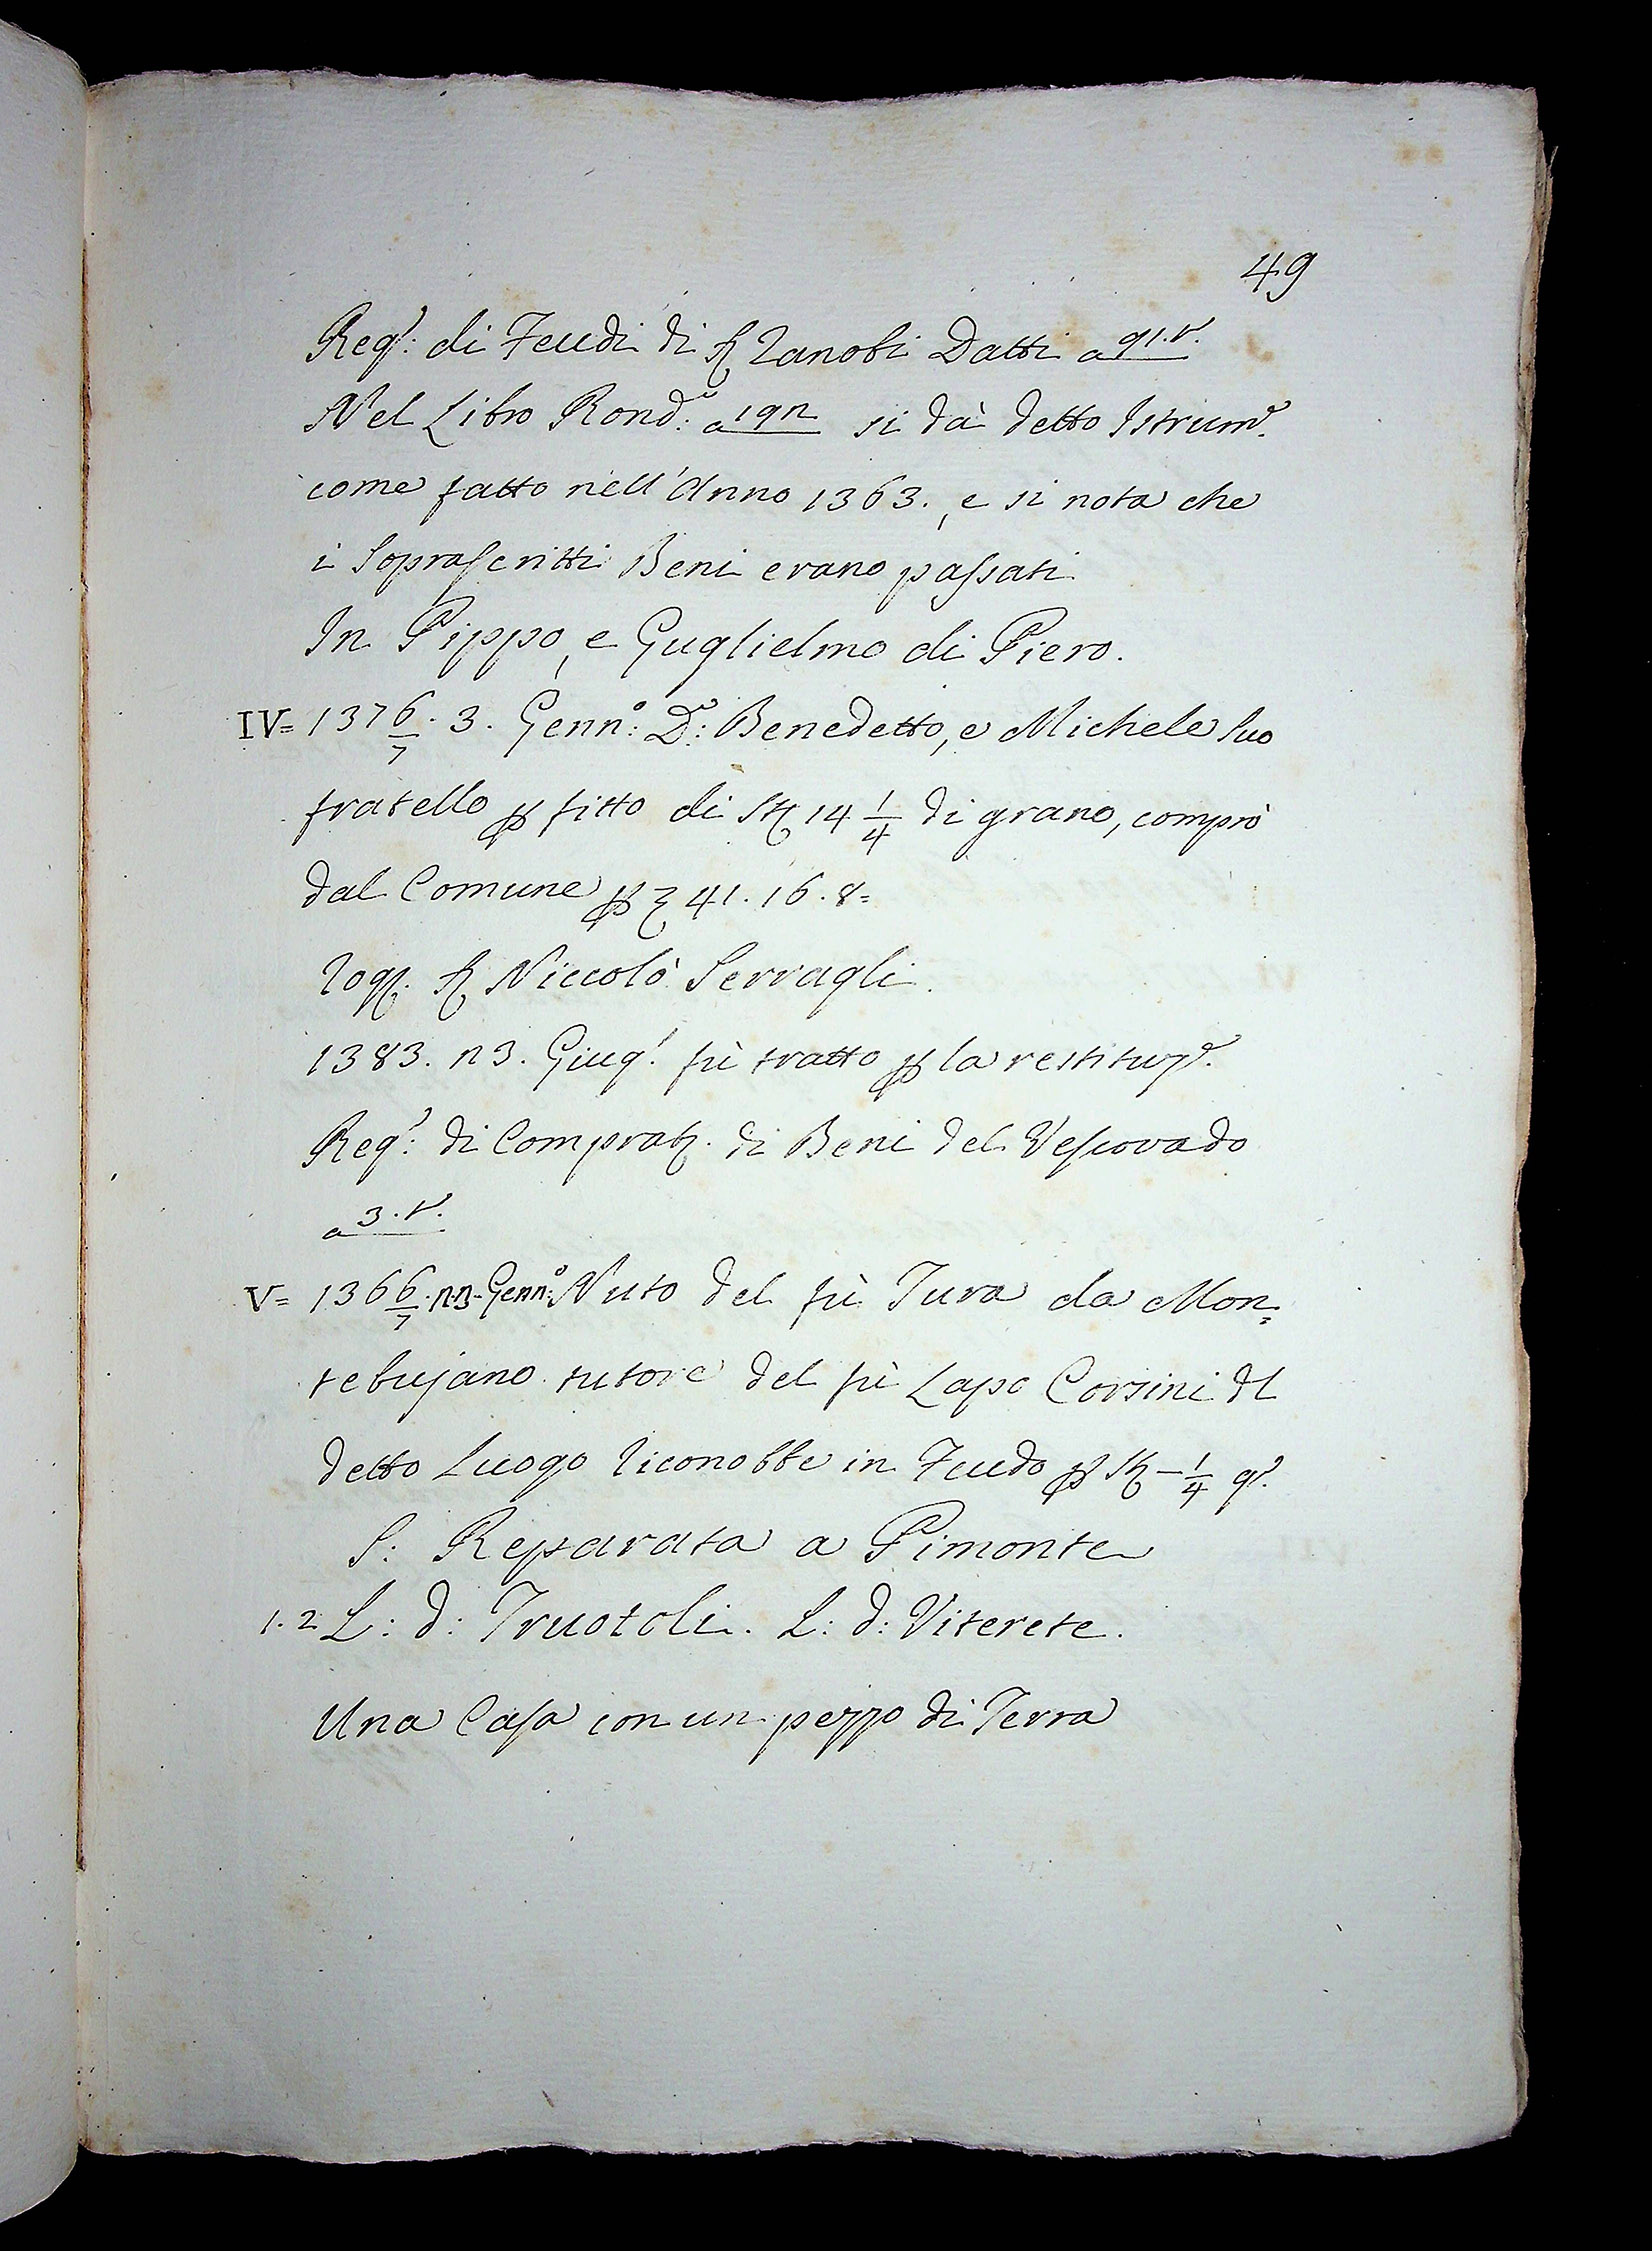 49
Reg.º: di Feudi di S. Zanobi Datti a 91.v.
Nel Libro Rond.º: a 192 si dà detto Istrum.º
come fatto nell'Anno 1363., e si nota che
i Soprascritti Beni erano passati
In Pippo, e Guglielmo di Piero.
IV= 1376/7. 3. Genn.º: D.º: Benedetto, e Michele Suo
fratello p fitto di St. 14 1/4 di grano, comprò
dal Comune p £ 41. 16. 8=
Rog. S. Niccolò Serragli.
1383. 23. Giug.º fù tratto p la restituz.e
Reg.º: di Comprat. di Beni del Vescovado
a 3.v.
V= 1366/7. 23. Genn.º: Nuto del fù Tura da Mon=
tebujano tutore del fù Lapo Corsini dl
detto Luogo riconobbe in Feudo p St. - 1/4 g.º
S: Reparata a Pimonte
1.2 L: d: Truotoli. L: d: Viterete.
Una Casa con un pezzo di Terra